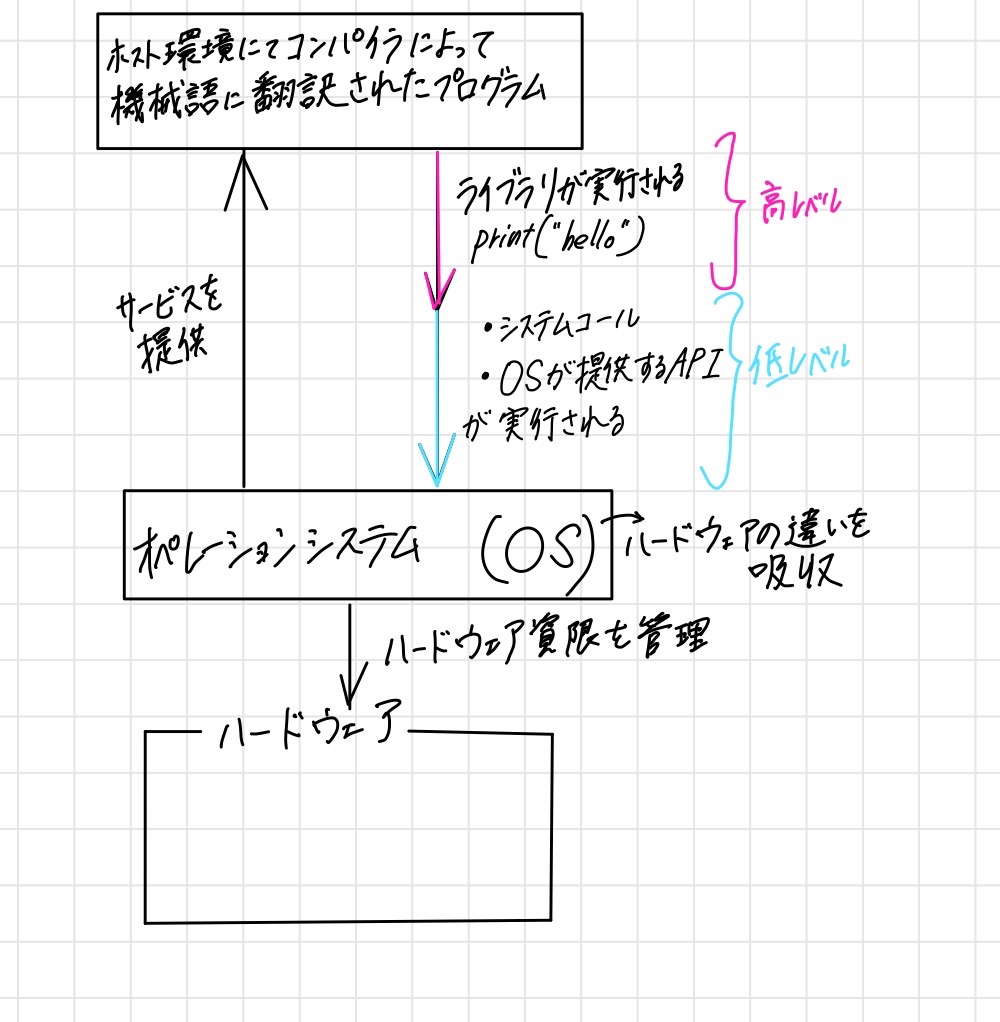 ホスト環境にてコンパイラによって
機械語に翻訳されたプログラム
ライブラリが実行される
print("hello")
高レベル
サービスを
提供
・システムコール
・OSが提供するAPI
が実行される
低レベル
オペレーションシステム (OS)
ハードウェアの違いを
吸収
ハードウェア資限を管理
ハードウェア